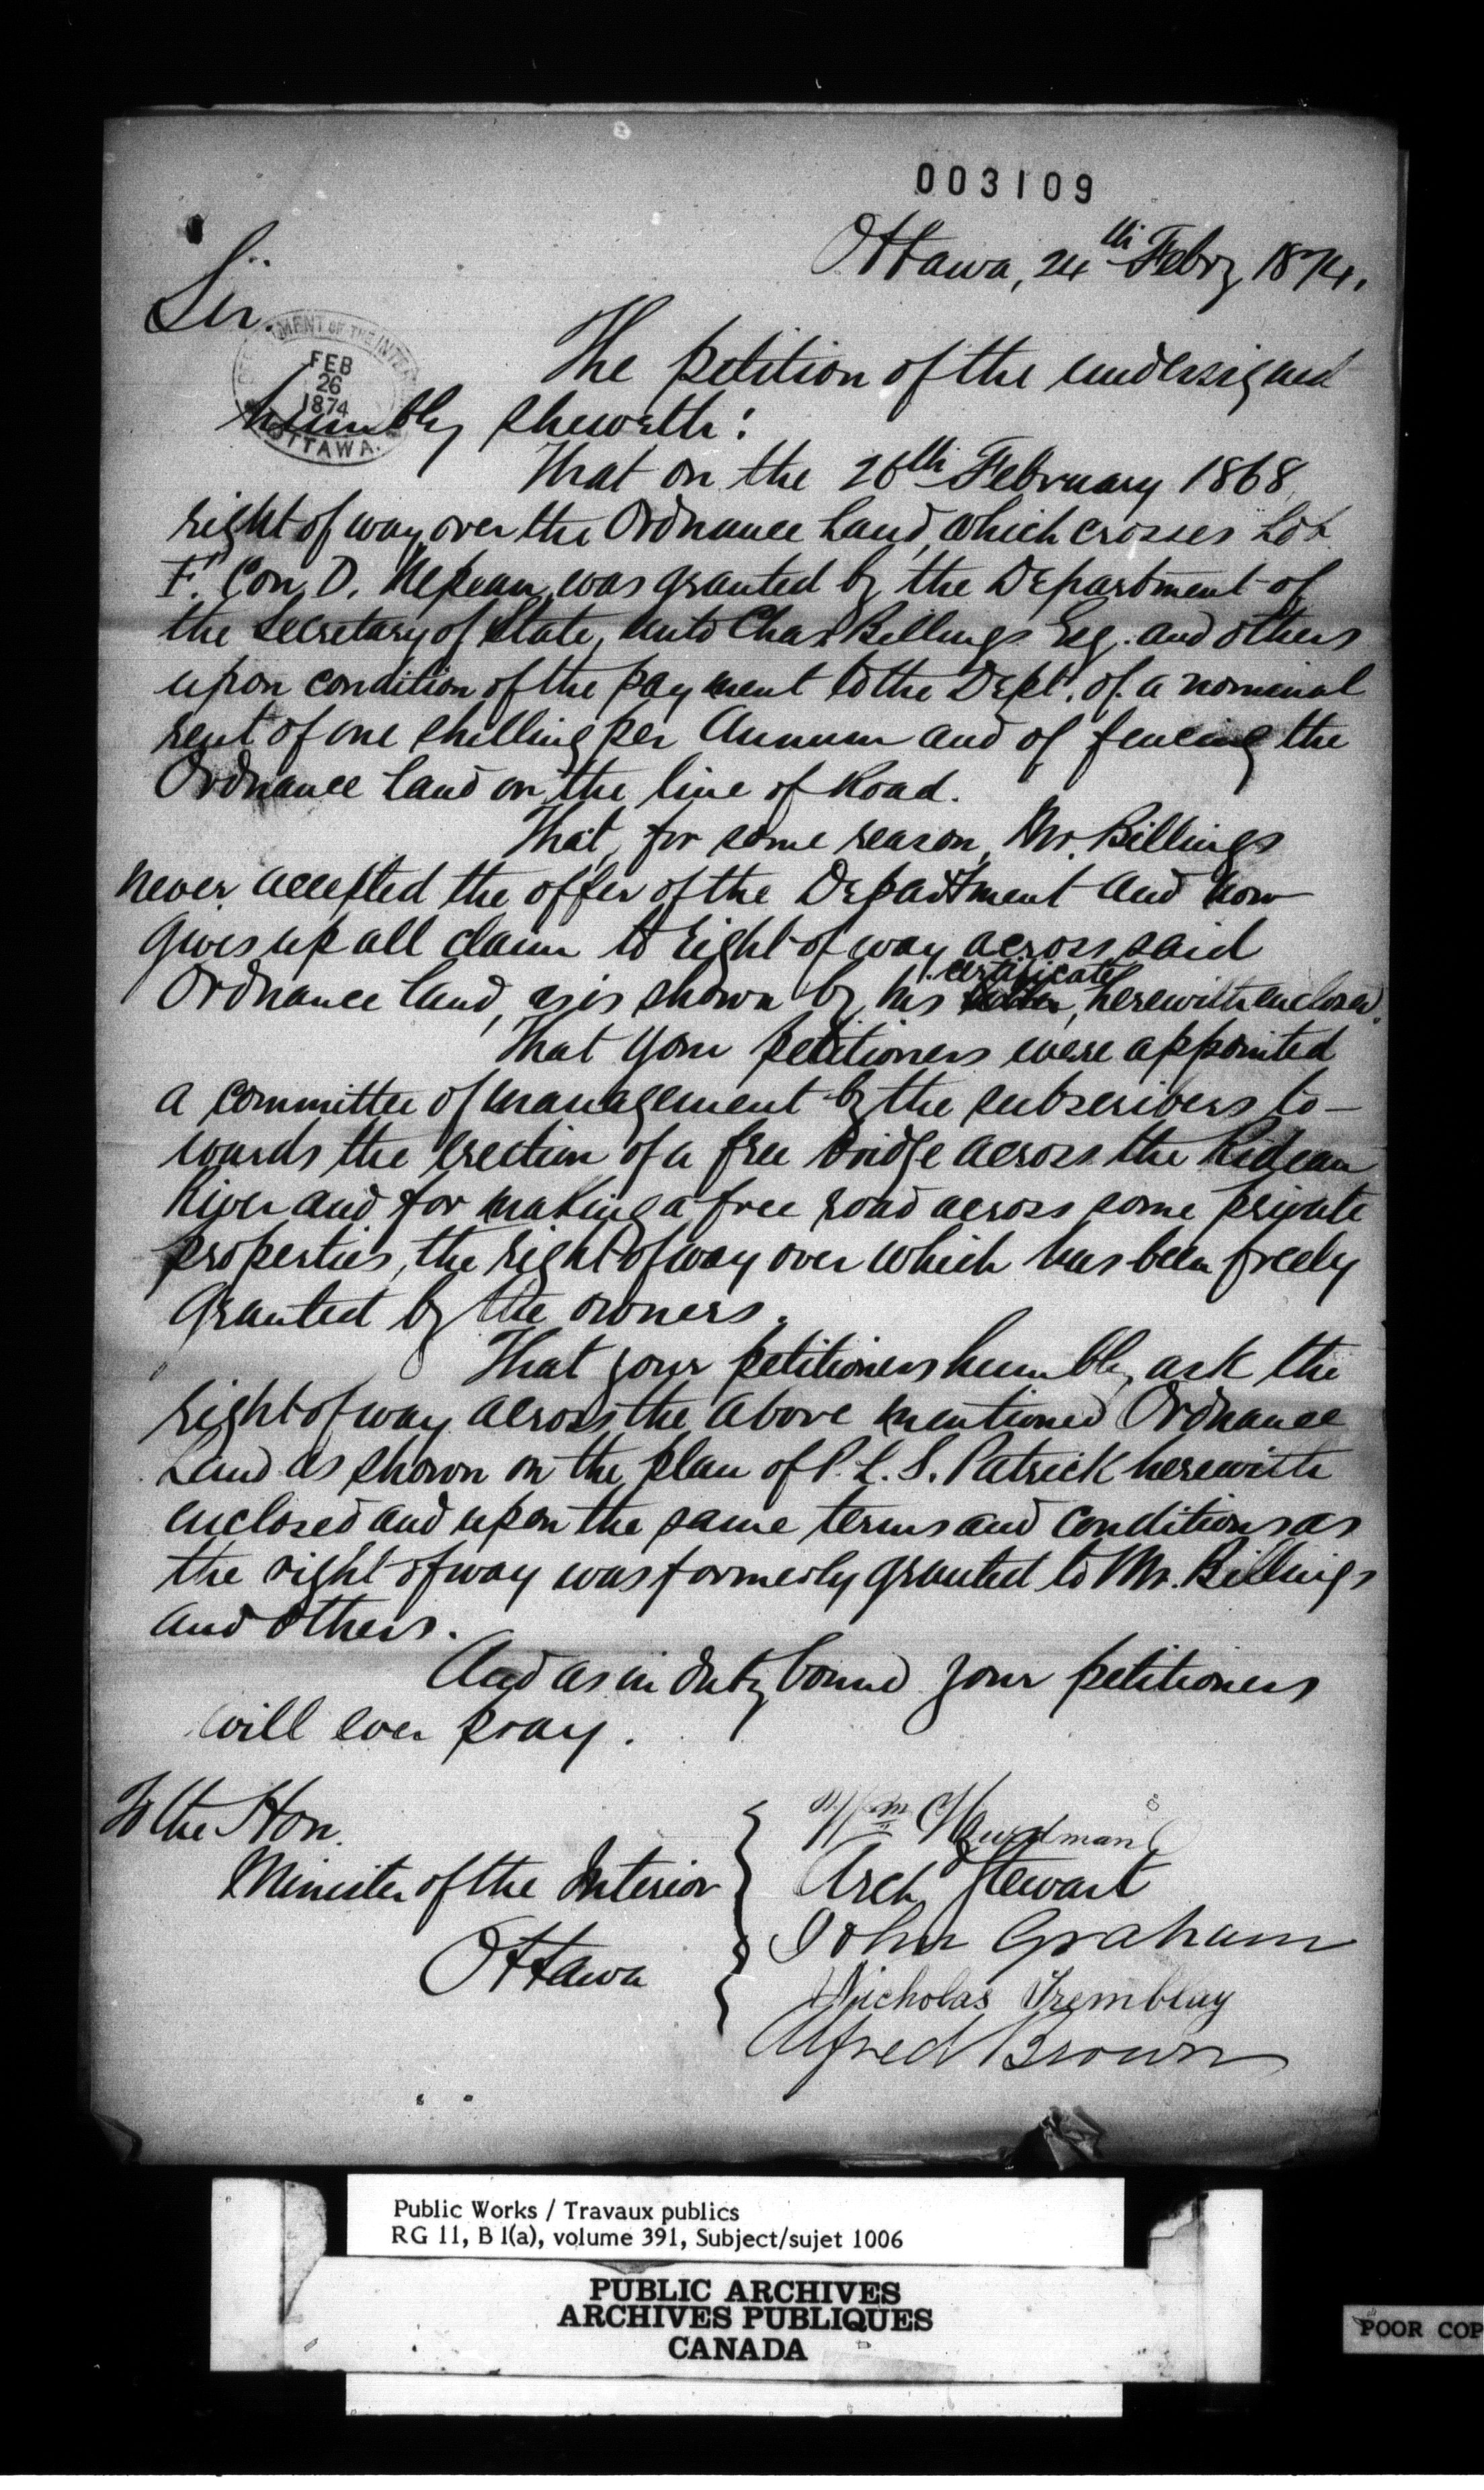 003109
Ottawa, 24th Febry 1874.
Sir.
DEPARTMENT OF THE INTERIOR
FEB
26
1874
OTTAWA.
The petition of the undersigned
humbly sheweth:
That on the 20th February 1868
right of way over the Ordnance Land, which crosses Lot
F. Con. D. Nepean, was granted by the Department of
the Secretary of State, unto Chas Billings Esq. and others
upon condition of the payment to the Dept. of a nominal
rent of one shilling per Annum and of fencing the
Ordnance Land on the line of Road.
That, for some reason, Mr. Billings
never accepted the offer of the Department and now
gives up all claim to right of way across said
Ordnance Land, as is shown by his certificate, herewith enclosed.
That your petitioners were appointed
a committee of management by the subscribers to-
wards the erection of a free bridge across the Rideau
River and for making a free road across some private
properties, the right of way over which has been freely
granted by the owners.
That your petitioners humbly ask the
right of way across the above mentioned Ordnance
Land as shown on the plan of P. L. S. Patrick herewith
enclosed and upon the same terms and conditions as
the right of way was formerly granted to Mr. Billings
and others.
And as in duty bound your petitioners
will ever pray.
To the Hon.
Minister of the Interior
Ottawa
Wm Hurdman
Arch Stewart
John Graham
Nicholas Tremblay
Alfred Brown
Public Works / Travaux publics
RG 11, B 1(a), volume 391, Subject/sujet 1006
PUBLIC ARCHIVES
ARCHIVES PUBLIQUES
CANADA
POOR COP